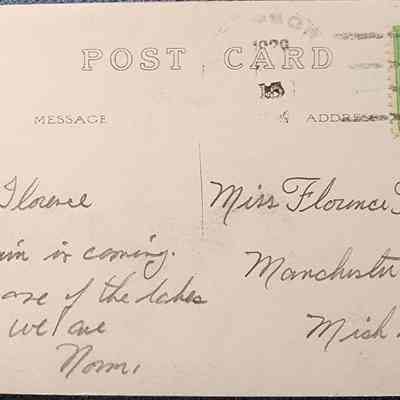 POST CARD
1929
15
MESSAGE
ADDRESS
Florence
is coming.
one of the lakes
we are
Norm,
Miss Florence
Manchester
Mich.